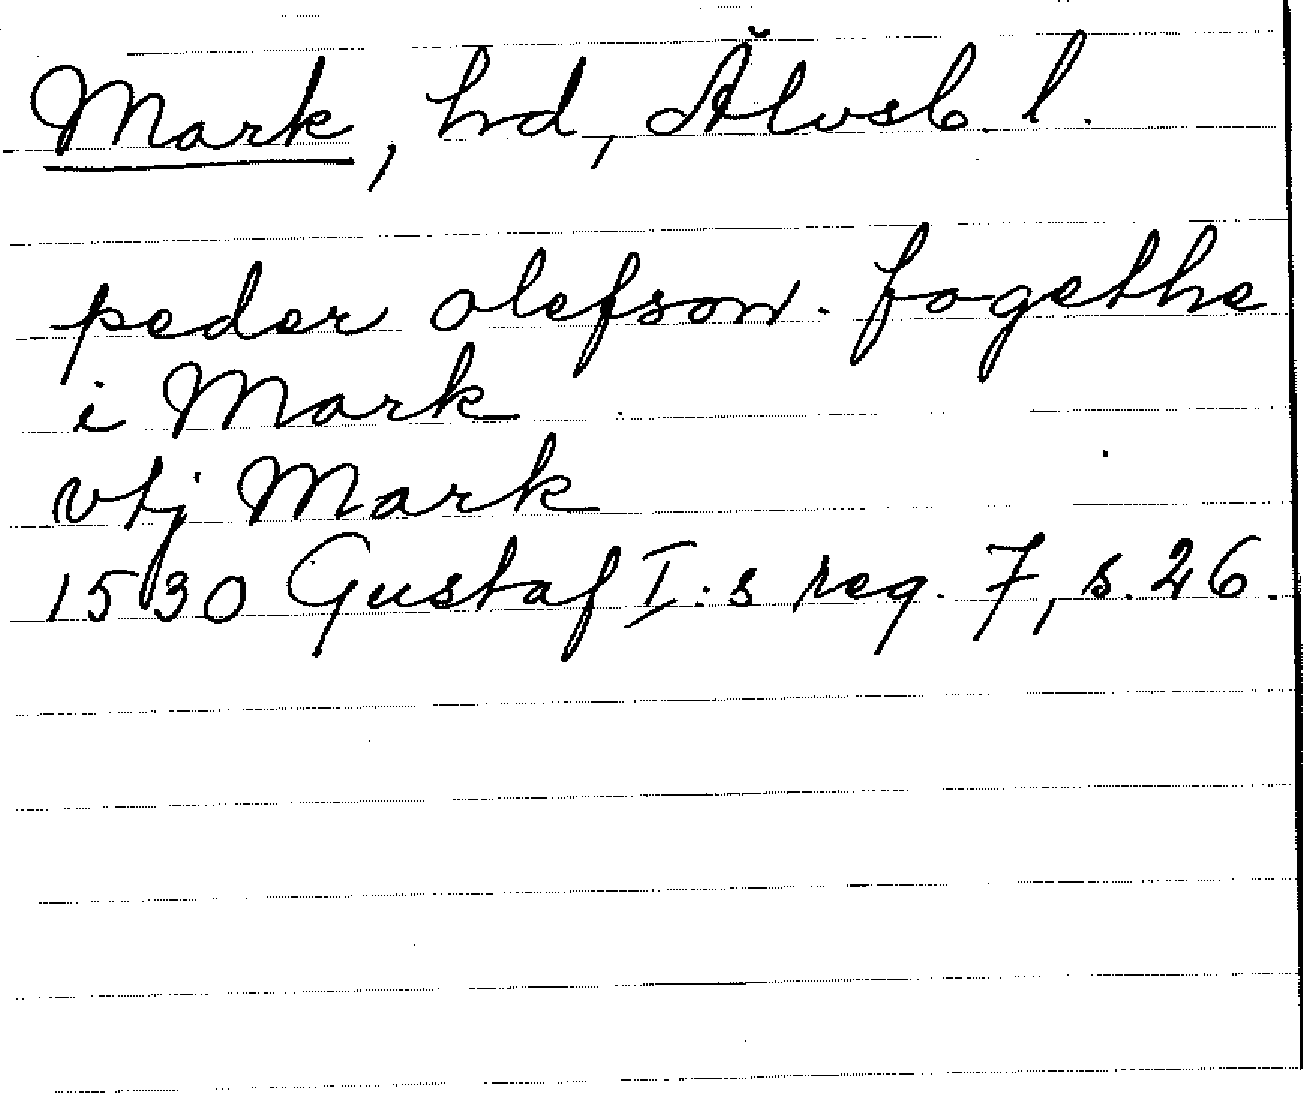 Mark, hd, Älvsb. l.
peder olefson. fogethe
i Mark
vtj Mark
1530 Gustaf I:s reg. 7, s. 26.